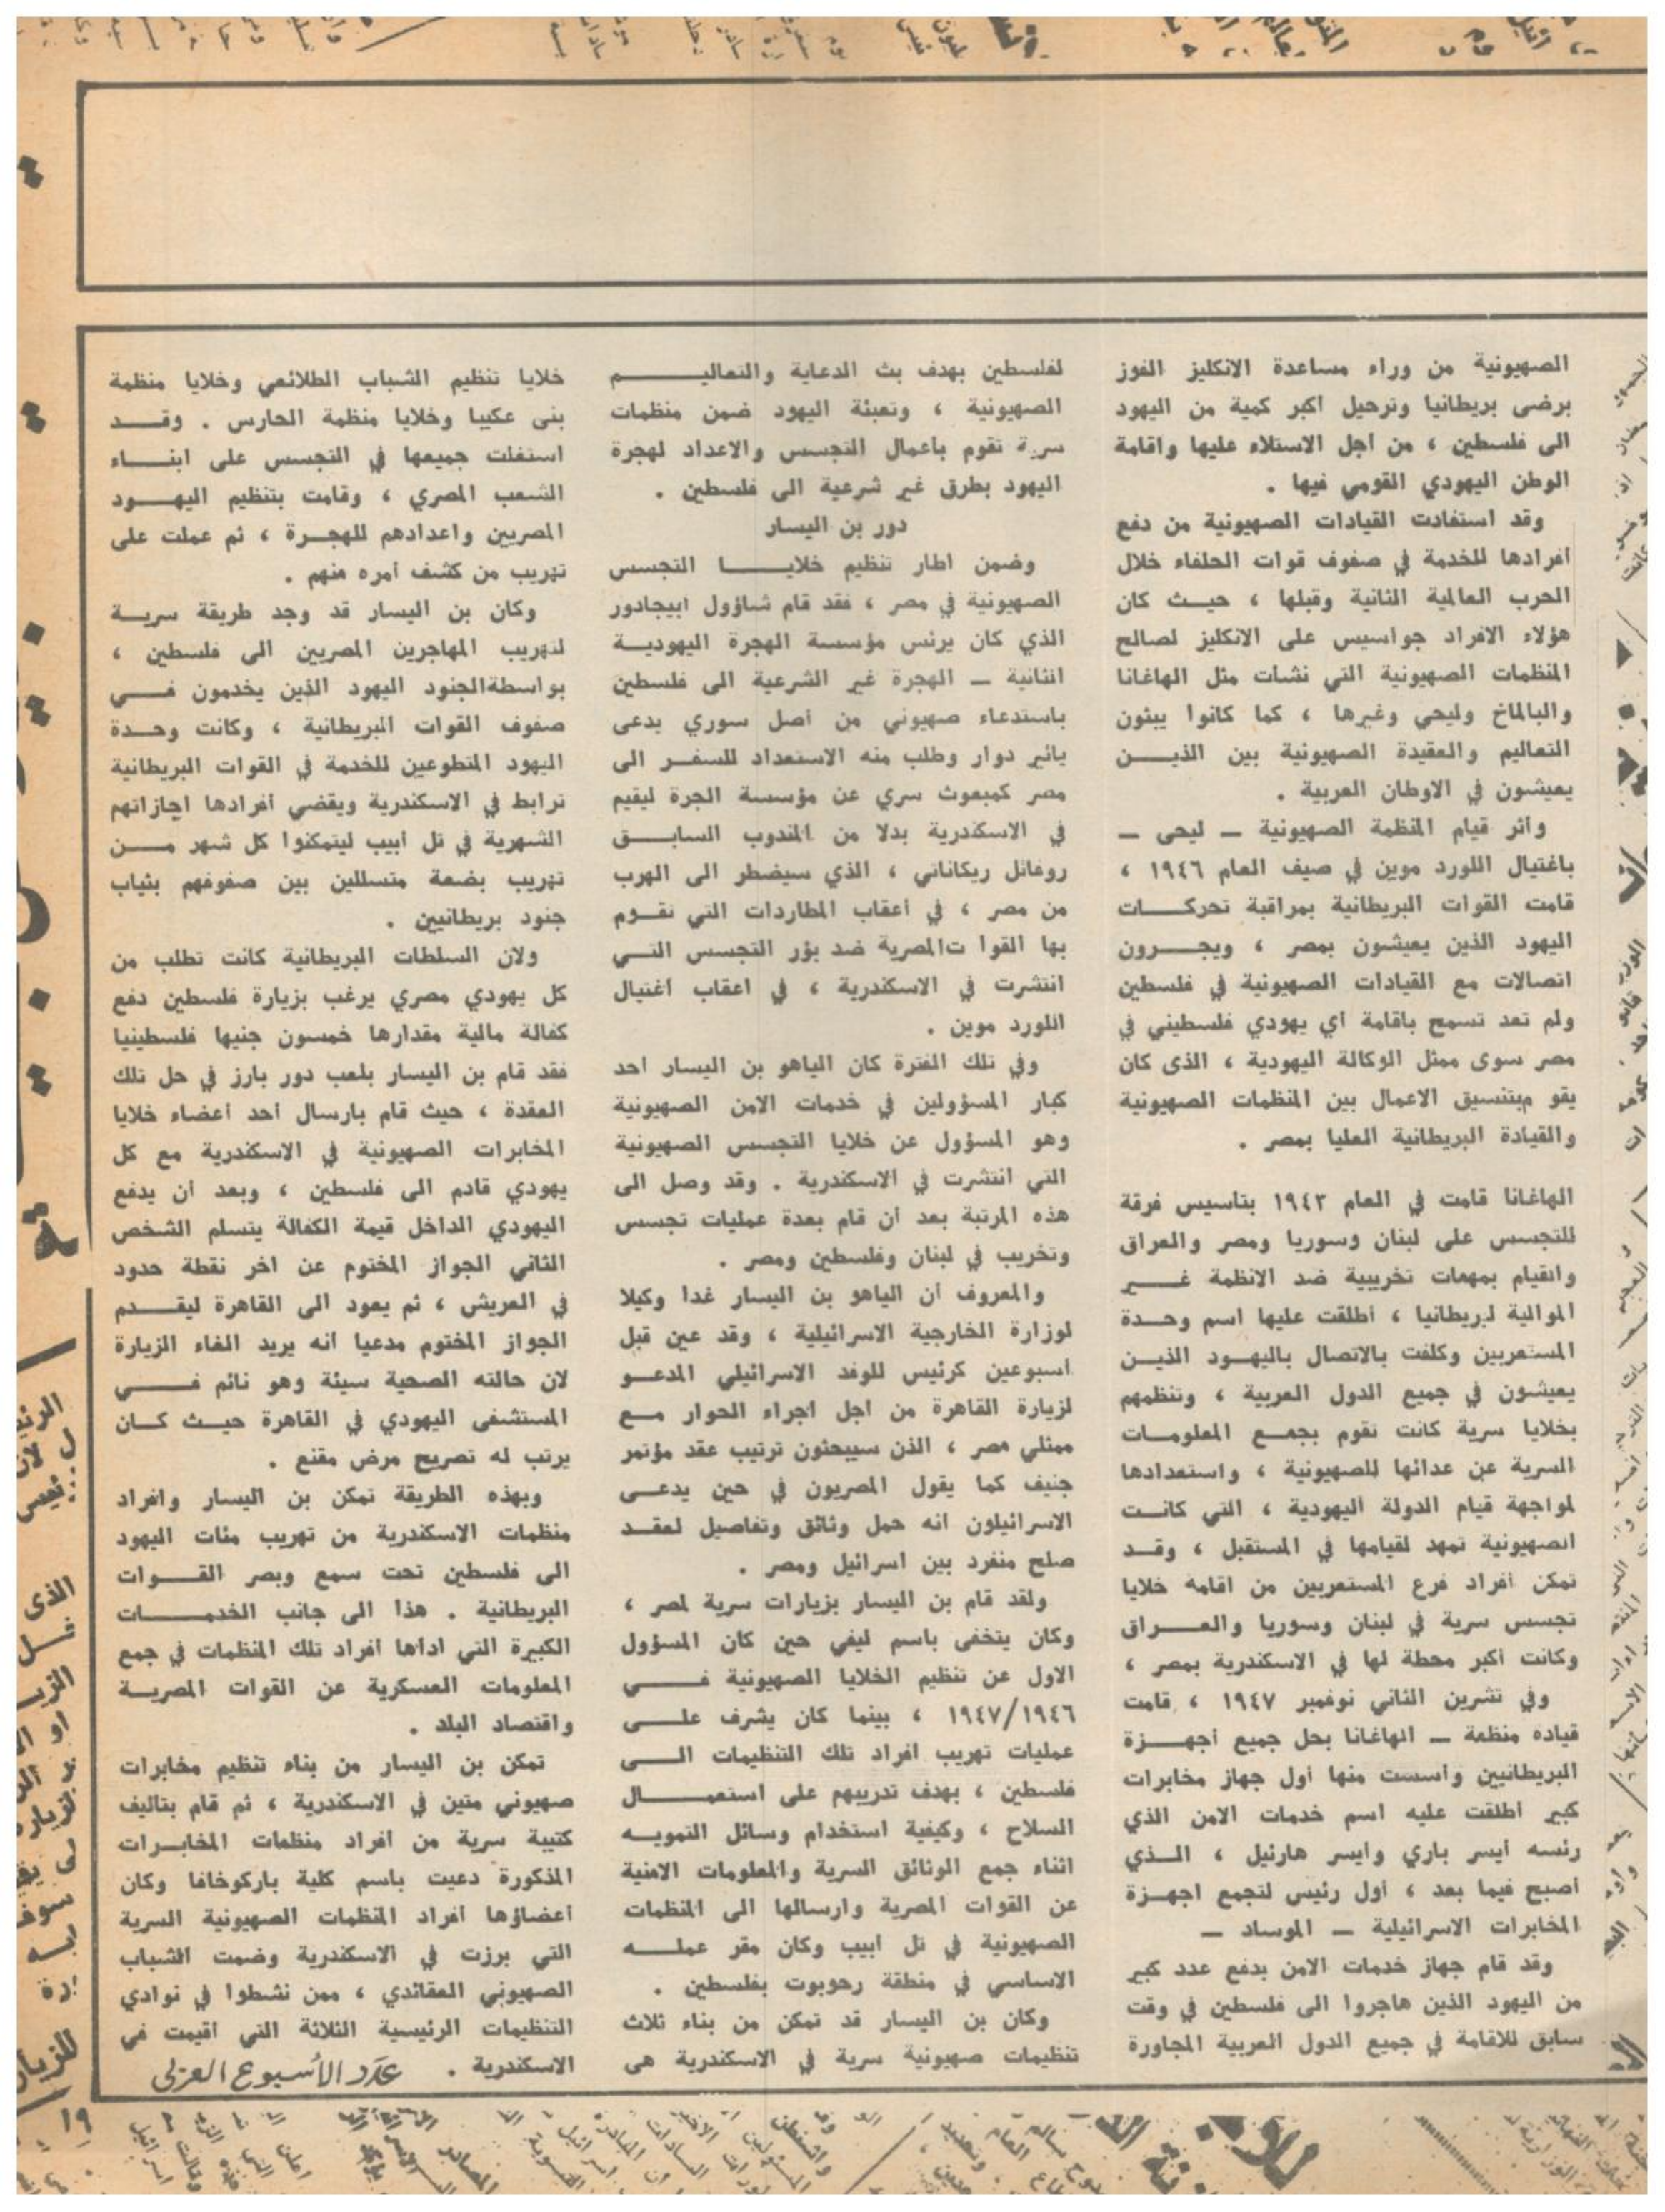 الصهيونية من وراء مساعدة الانكليز الفوز
برضى بريطانيا وترحيل اكبر كمية من اليهود
الى فلسطين ، من اجل الاستلاء عليها واقامة
الوطن اليهودي القومي فيها .
وقد استفادت القيادات الصهيونية من دفع
أفرادها للخدمة في صفوف قوات الحلفاء خلال
الحرب العالمية الثانية وقبلها ، حيث كان
هؤلاء الافراد جواسيس على الانكليز لصالح
المنظمات الصهيونية التي نشات مثل الهاغانا
والبالماخ وليحي وغيرها ، كما كانوا يبثون
التعاليم والعقيدة الصهيونية بين الذيــن
يعيشون في الاوطان العربية .
وأثر قيام المنظمة الصهيونية — ليحى —
باغتيال اللورد موين في صيف العام ١٩٤٦ ،
قامت القوات البريطانية بمراقبة تحركــات
اليهود الذين يعيشون بمصر ، ويجــرون
اتصالات مع القيادات الصهيونية في فلسطين
ولم تعد تسمح باقامة أي يهودي فلسطيني في
مصر سوى ممثل الوكالة اليهودية ، الذى كان
يقو مبتنسيق الاعمال بين المنظمات الصهيونية
والقيادة البريطانية العليا بمصر .
الهاغانا قامت في العام ١٩٤٣ بتاسيس فرقة
للتجسس على لبنان وسوريا ومصر والعراق
والقيام بمهمات تخريبية ضد الانظمة غــير
الموالية لبريطانيا ، أطلقت عليها اسم وحــدة
المستعربين وكلفت بالاتصال باليهــود الذيــن
يعيشون في جميع الدول العربية ، وتنظمهم
بخلايا سرية كانت تقوم بجمــع المعلومــات
السرية عن عدائها للصهيونية ، واستعدادها
لمواجهة قيام الدولة اليهودية ، التي كانــت
الصهيونية تمهد لقيامها في المستقبل ، وقــد
تمكن أفراد فرع المستعربين من اقامة خلايا
تجسس سرية في لبنان وسوريا والعــراق
وكانت أكبر محطة لها في الاسكندرية بمصر ،
وفي تشرين الثاني نوفمبر ١٩٤٧ ، قامت
قياده منظمة — الهاغانا بحل جميع أجهــزة
البريطانيين وأسست منها أول جهاز مخابرات
كبير أطلقت عليه اسم خدمات الامن الذي
رئسه أيسر باري وايسر هارئيل ، الــذي
أصبح فيما بعد ، أول رئيس لتجمع اجهــزة
المخابرات الاسرائيلية — الموساد —
وقد قام جهاز خدمات الامن بدفع عدد كبير
من اليهود الذين هاجروا الى فلسطين في وقت
سابق للاقامة في جميع الدول العربية المجاورة
لفلسطين بهدف بث الدعاية والتعاليــم
الصهيونية ، وتعبئة اليهود ضمن منظمات
سرية تقوم بأعمال التجسس والاعداد لهجرة
اليهود بطرق غير شرعية الى فلسطين .
دور بن اليسار
وضمن اطار تنظيم خلايــا التجسس
الصهيونية في مصر ، فقد قام شاؤول ابيجادور
الذي كان يرئس مؤسسة الهجرة اليهوديــة
الثانية — الهجرة غير الشرعية الى فلسطين
باستدعاء صهيوني من أصل سوري يدعى
يائير دوار وطلب منه الاستعداد للسفــر الى
مصر كمبعوث سري عن مؤسسة الجرة ليقيم
في الاسكندرية بدلا من المندوب السابــق
روفائل ريكاناتي ، الذي سيضطر الى الهرب
من مصر ، في أعقاب المطاردات التي تقــوم
بها القوا تالمصرية ضد بؤر التجسس التــي
انتشرت في الاسكندرية ، في اعقاب اغتيال
اللورد موين .
وفي تلك الفترة كان الياهو بن اليسار احد
كبار المسؤولين في خدمات الامن الصهيونية
وهو المسؤول عن خلايا التجسس الصهيونية
التي انتشرت في الاسكندرية . وقد وصل الى
هذه المرتبة بعد أن قام بعدة عمليات تجسس
وتخريب في لبنان وفلسطين ومصر .
والمعروف أن الياهو بن اليسار غدا وكيلا
لوزارة الخارجية الاسرائيلية ، وقد عين قبل
أسبوعين كرئيس للوفد الاسرائيلي المدعــو
لزيارة القاهرة من اجل اجراء الحوار مــع
ممثلي مصر ، الذن سيبحثون ترتيب عقد مؤتمر
جنيف كما يقول المصريون في حين يدعــى
الاسرائيلون انه حمل وثائق وتفاصيل لعقــد
صلح منفرد بين اسرائيل ومصر .
ولقد قام بن اليسار بزيارات سرية لمصر ،
وكان يتخفى باسم ليفي حين كان المسؤول
الاول عن تنظيم الخلايا الصهيونية فــي
١٩٤٧/١٩٤٦ ، بينما كان يشرف علــى
عمليات تهريب افراد تلك التنظيمات الــى
فلسطين ، بهدف تدريبهم على استعمــال
السلاح ، وكيفية استخدام وسائل التمويــه
اثناء جمع الوثائق السرية والمعلومات الامنية
عن القوات المصرية وارسالها الى المنظمات
الصهيونية في تل أبيب وكان مقر عملــه
الاساسي في منطقة رحوبوت بفلسطين .
وكان بن اليسار قد تمكن من بناء ثلاث
تنظيمات صهيونية سرية في الاسكندرية هى
خلايا تنظيم الشباب الطلائعي وخلايا منظمة
بنى عكيبا وخلايا منظمة الحارس . وقــد
استغلت جميعها في التجسس على ابنــاء
الشعب المصري ، وقامت بتنظيم اليهــود
المصريين واعدادهم للهجــرة ، ثم عملت على
تهريب من كشف أمره منهم .
وكان بن اليسار قد وجد طريقة سريــة
لتهريب المهاجرين المصريين الى فلسطين ،
بواسطةالجنود اليهود الذين يخدمون فــي
صفوف القوات البريطانية ، وكانت وحــدة
اليهود المتطوعين للخدمة في القوات البريطانية
ترابط في الاسكندرية ويقضي أفرادها اجازاتهم
الشهرية في تل أبيب ليتمكنوا كل شهر مــن
تهريب بضعة متسللين بين صفوفهم بثياب
جنود بريطانيين .
ولان السلطات البريطانية كانت تطلب من
كل يهودي مصري يرغب بزيارة فلسطين دفع
كفالة مالية مقدارها خمسون جنيها فلسطينيا
فقد قام بن اليسار بلعب دور بارز في حل تلك
العقدة ، حيث قام بارسال أحد أعضاء خلايا
المخابرات الصهيونية في الاسكندرية مع كل
يهودي قادم الى فلسطين ، وبعد أن يدفع
اليهودي الداخل قيمة الكفالة يتسلم الشخص
الثاني الجواز المختوم عن اخر نقطة حدود
في العريش ، ثم يعود الى القاهرة ليقــدم
الجواز المختوم مدعيا انه يريد الغاء الزيارة
لان حالته الصحية سيئة وهو نائم فــي
المستشفى اليهودي في القاهرة حيــث كــان
يرتب له تصريح مرض مقنع .
وبهذه الطريقة تمكن بن اليسار وافراد
منظمات الاسكندرية من تهريب مئات اليهود
الى فلسطين تحت سمع وبصر القــوات
البريطانية . هذا الى جانب الخدمــات
الكبيرة التي اداها افراد تلك المنظمات في جمع
المعلومات العسكرية عن القوات المصريــة
واقتصاد البلد .
تمكن بن اليسار من بناء تنظيم مخابرات
صهيوني متين في الاسكندرية ، ثم قام بتاليف
كتيبة سرية من أفراد منظمات المخابــرات
المذكورة دعيت باسم كلية باركوخافا وكان
أعضاؤها أفراد المنظمات الصهيونية السرية
التي برزت في الاسكندرية وضمت الشباب
الصهيوني العقائدي ، ممن نشطوا في نوادي
التنظيمات الرئيسية الثلاثة التي أقيمت في
الاسكندرية .
عدد الأسبوع العربي
١٩